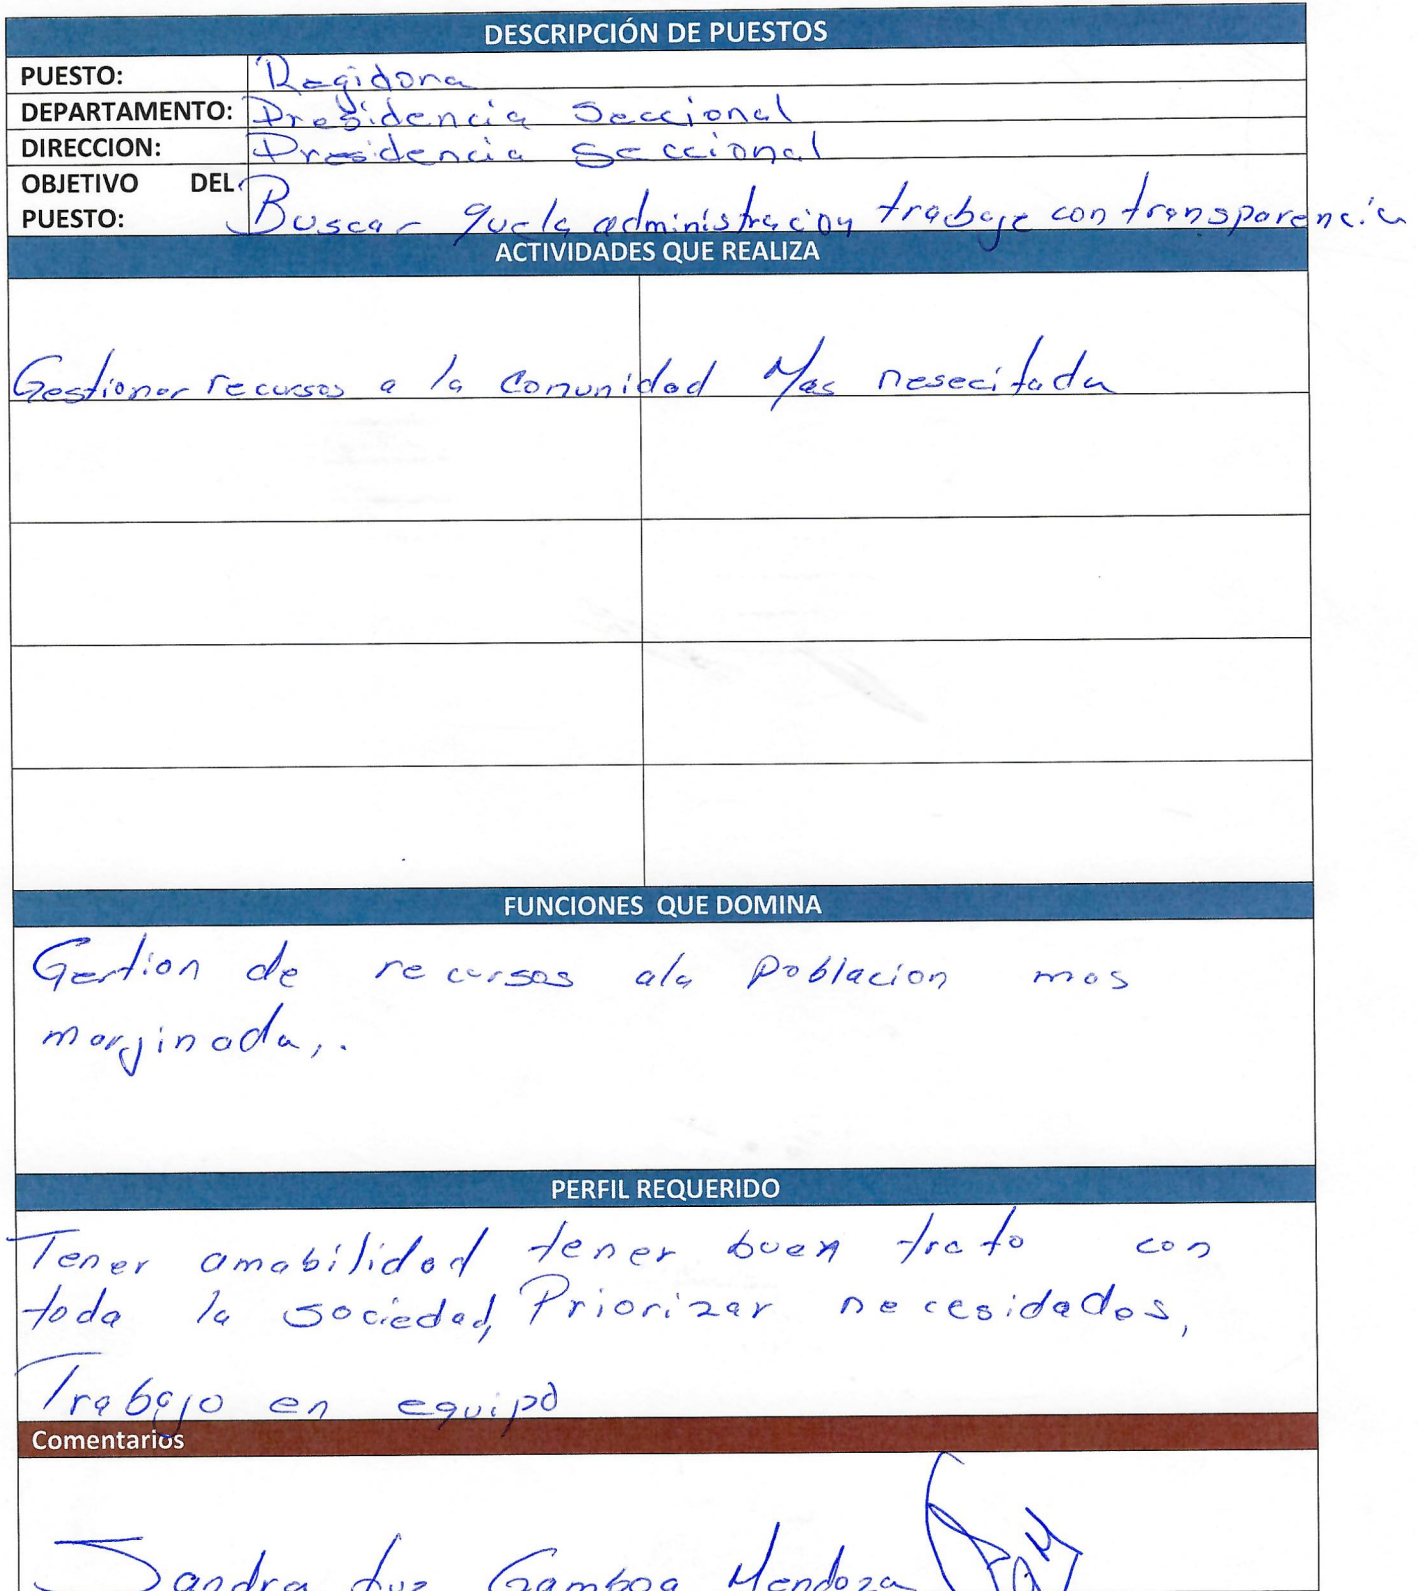 DESCRIPCIÓN DE PUESTOS
PUESTO: Regidora
DEPARTAMENTO: Presidencia Seccional
DIRECCION: Presidencia Seccional
OBJETIVO DEL
PUESTO: Buscar que la administracion trabaje con transparencia
ACTIVIDADES QUE REALIZA
Gestionar recursos a la comunidad Mas nesecitada
FUNCIONES QUE DOMINA
Gestion de recursos ala poblacion mas
marjinada,.
PERFIL REQUERIDO
Tener amabilidad tener buen trato con
toda la sociedad, Priorizar necesidades,
Trabajo en equipo
Comentarios
Sandra Luz Gamboa Mendoza